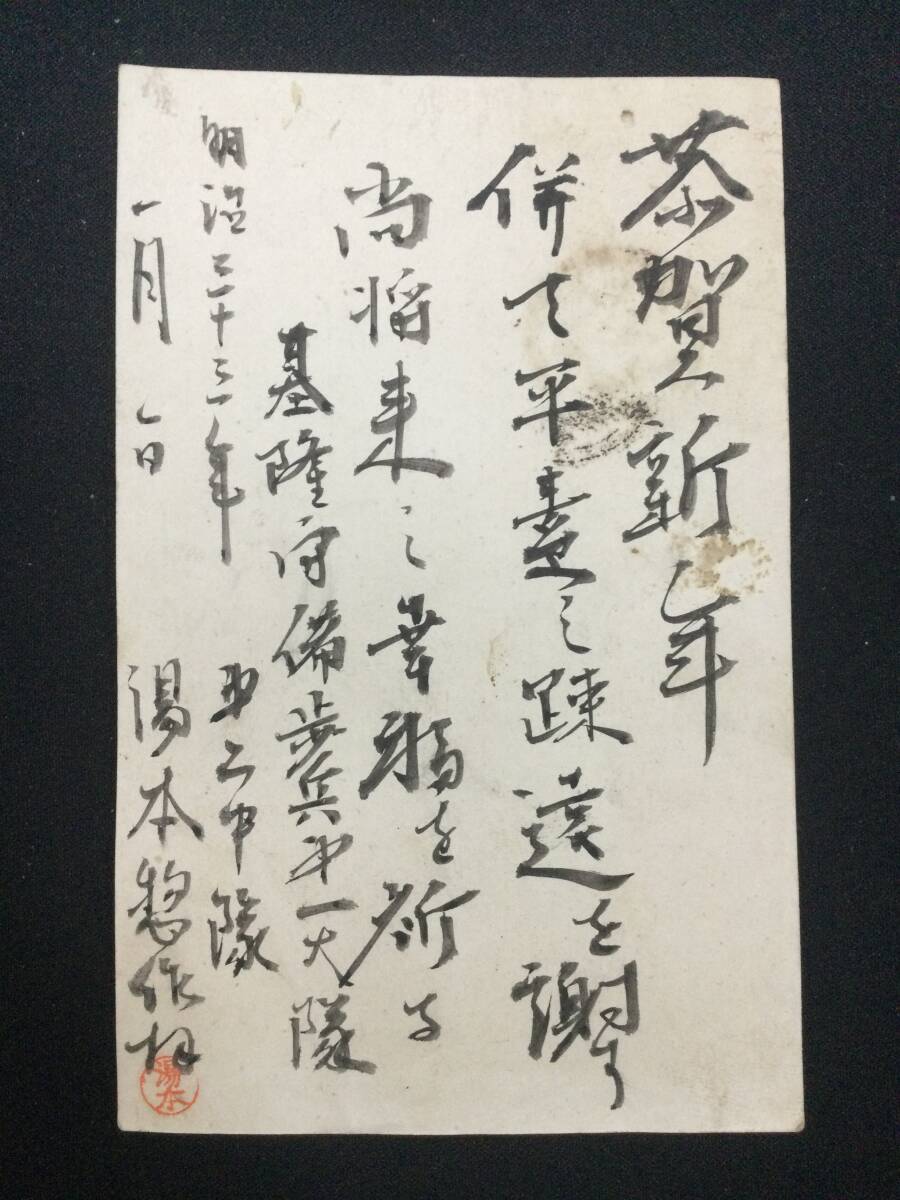 恭賀新年
併て平素之疎遠を謝す
尚将来之幸福を祈る
基隆守備歩兵第一大隊
第二中隊
明治三十三年
一月一日
湯本惣作拝
湯本